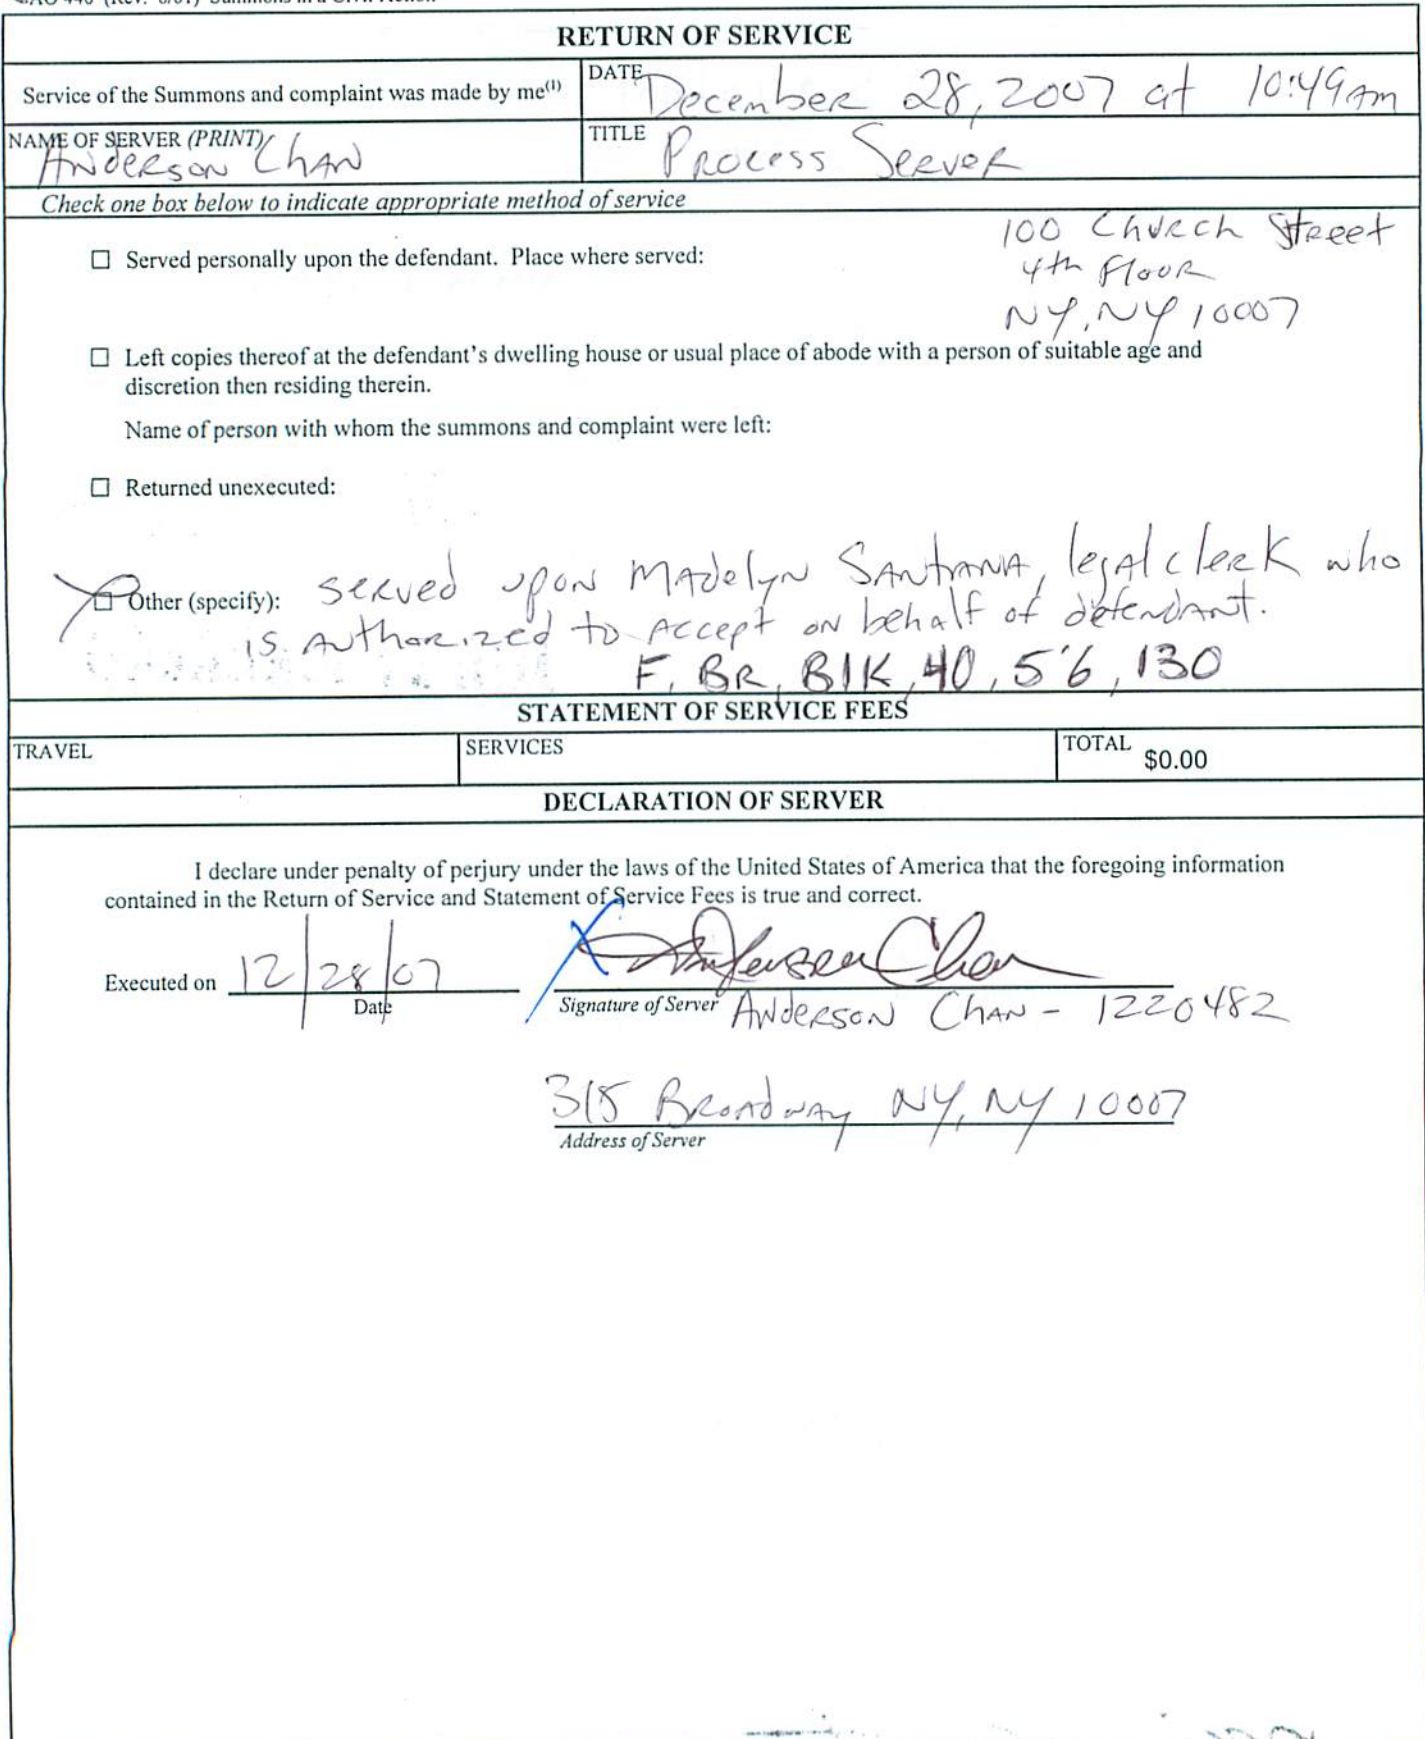 RETURN OF SERVICE
Service of the Summons and complaint was made by me(1)
DATE December 28, 2007 at 10:49am
NAME OF SERVER (PRINT) Anderson Chan
TITLE Process Server
Check one box below to indicate appropriate method of service
100 Church Street
☐ Served personally upon the defendant. Place where served:
4th Floor
NY, NY 10007
☐ Left copies thereof at the defendant's dwelling house or usual place of abode with a person of suitable age and
discretion then residing therein.
Name of person with whom the summons and complaint were left:
☐ Returned unexecuted:
☐ Other (specify): served upon Madelyn Santana, legal clerk who
is authorized to accept on behalf of defendant.
F, BR, Blk, 40, 5'6, 130
STATEMENT OF SERVICE FEES
TRAVEL SERVICES TOTAL $0.00
DECLARATION OF SERVER
I declare under penalty of perjury under the laws of the United States of America that the foregoing information
contained in the Return of Service and Statement of Service Fees is true and correct.
Executed on 12/28/07 X Anderson Chan
Date Signature of Server Anderson Chan - 1220482
315 Broadway NY, NY 10007
Address of Server